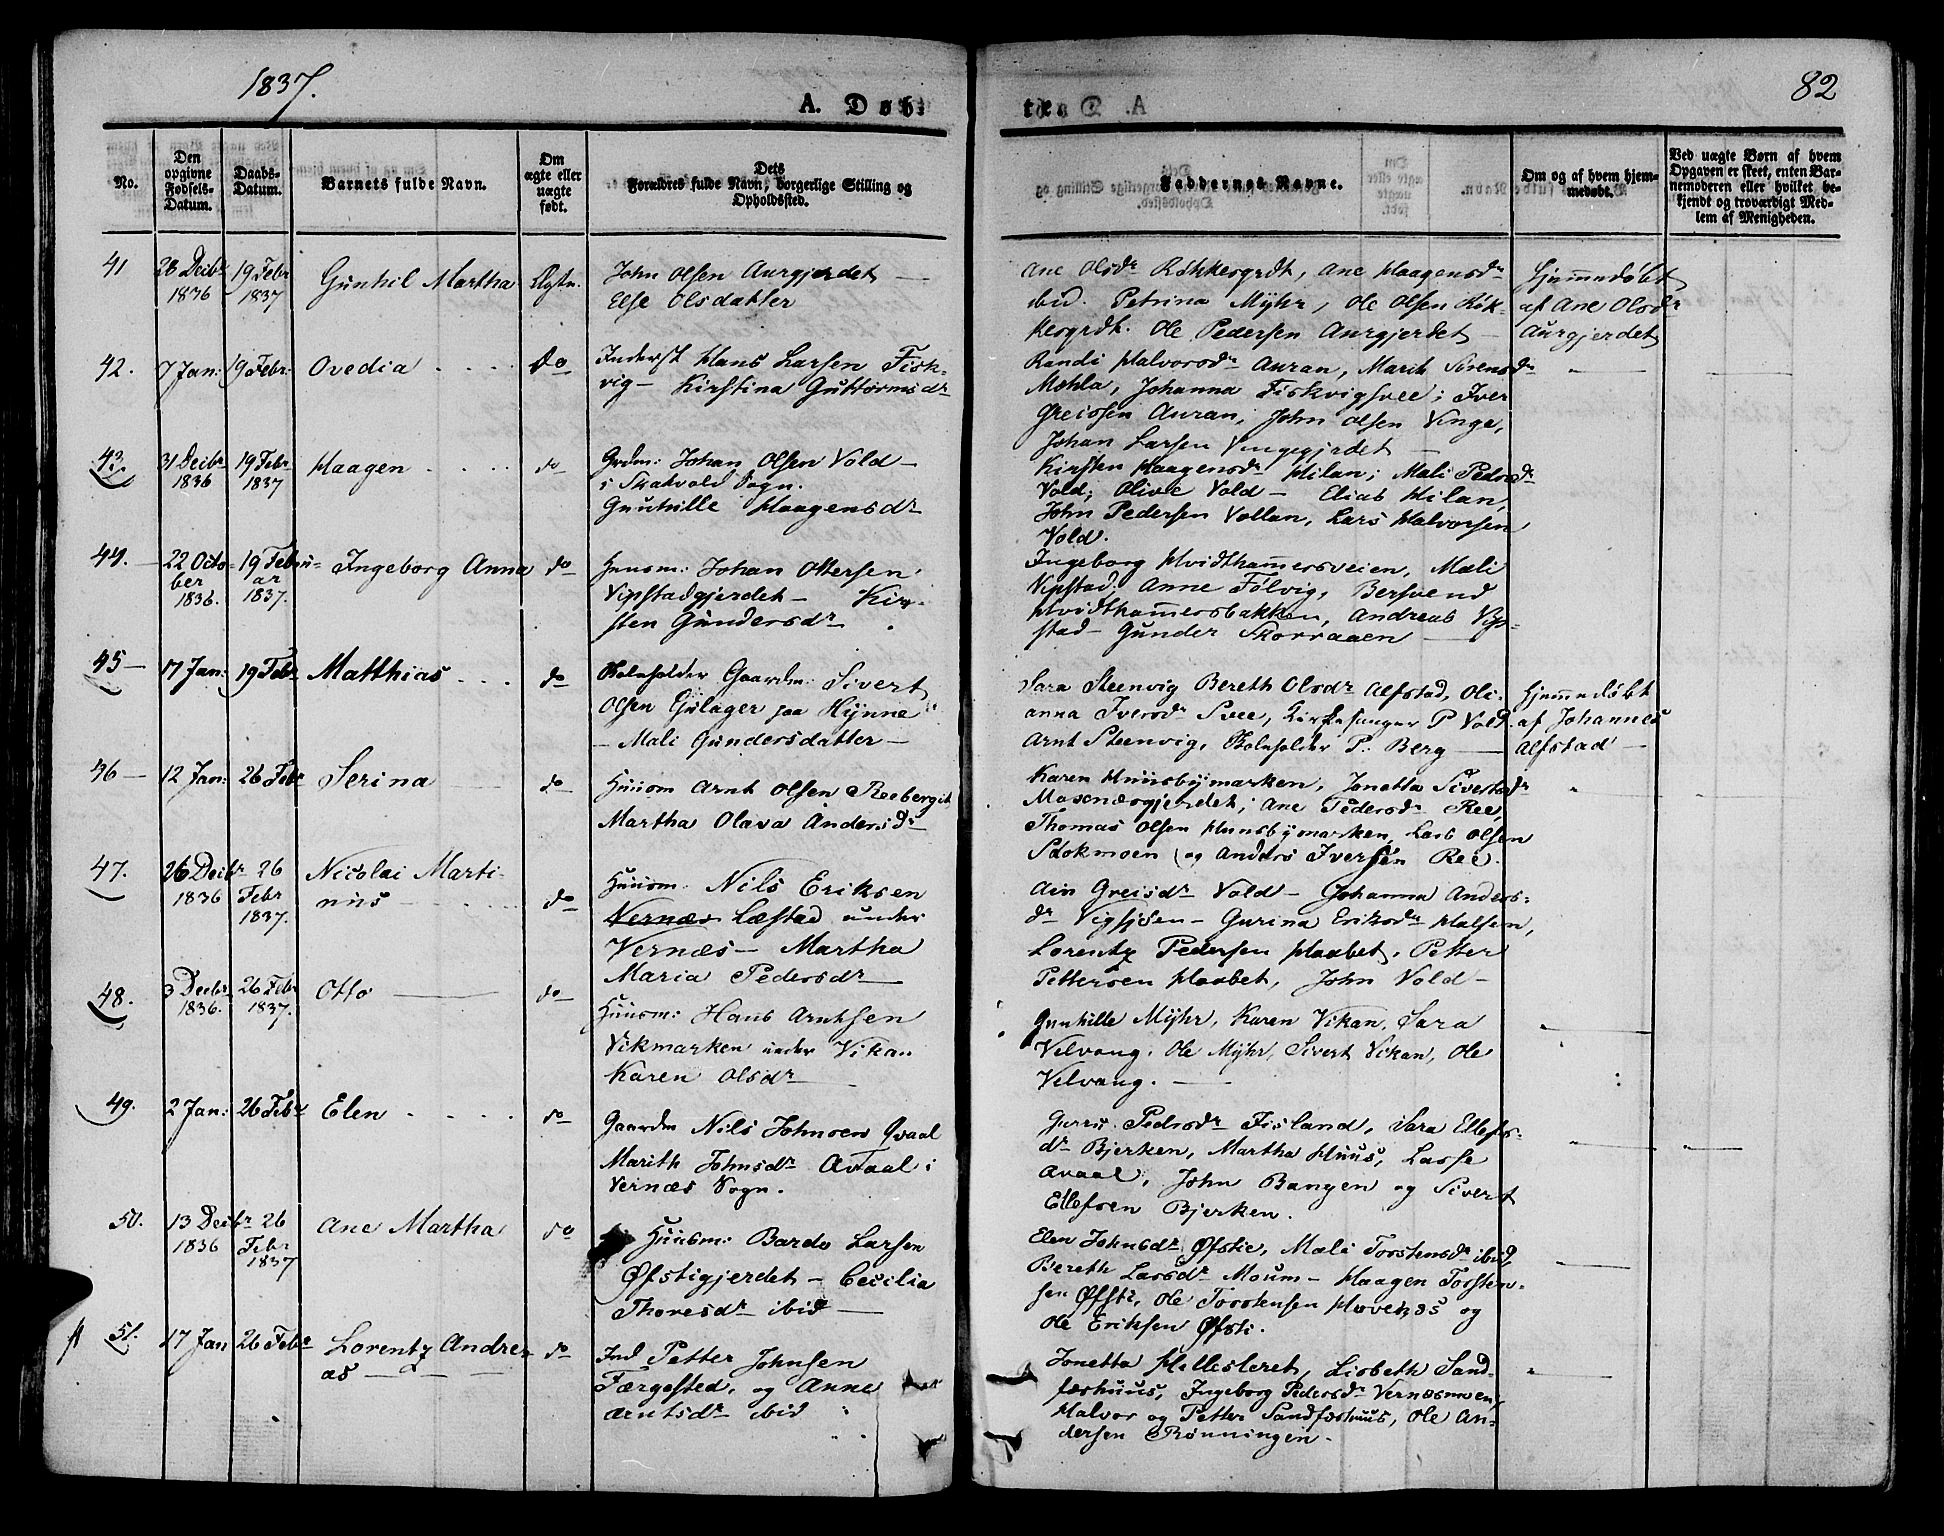 1837.
82
A. Døb-
te
No.
Den opgivne Fødsels-Datum.
Daabs-Datum.
Barnets fulde Navn.
Om ægte eller uægte født.
Dets Forældres fulde Navn, borgerlige Stilling og Opholdssted.
Faddernes Navne.
Om og af hvem hjem-medøbt.
Ved uægte Børn af hvem Opgaven er skeet, enten Bar-nemoderen eller hvilket be-kjendt og troværdigt Med-lem af Menigheden.
41
28 Decbr
1836
19 Febr
1837
Gunhil Martha
Ægte.
John Olsen Aurgjerdet —
Else Olsdatter
Ane Olsdr Røkkesgrdt, Ane Haagensdr
ibid. Petrina Mÿhr, Ole Olsen Røk-
kesgrdt. Ole Pedersen Aurgjerdet —
Hjemmedøbt
af Ane Olsdr
Aurgjerdet
42.
7 Jan:
19 Febr.
Ovedia
Do
Inderst Hans Larsen Fisk-
vig — Kirstina Guttormsdr
Randi Halvorsdr Auran, Marit Sivensdr
Mæhla, Johanna Fiskvigsvee; Iver
Greissen Auran, John Olsen Vinge,
Johan Larsen Vingegjerdet —
43.
31 Decbr
1836
19 Febr
1837
Haagen
do
Grdm: Johan Olsen Vold —
i Skatvold Sogn.
Gunhille Haagensdr
Kirsten Haagensdr Hilan; Mali Pedersdr
Vold; Olive Vold — Elias Hilan,
John Pedersen Vollan, Lars Halvorsen
Vold.
44.
22 Octo-
ber
1836.
19 Febru-
ar
1837.
Ingeborg Anna
do
Huusm: Johan Ottersen
Vipstadgjerdet — Kir-
sten Gundersdr
Ingeborg Hvidthammersveien, Mæli
Vipstad, Anne Følvig, Bersvend
Hvidthammersbakken, Andreas Vip-
stad — Gunder Skorraaen —
45 —
17 Jan:
19 Febr
Matthias
do
Gaardm: Sivert
Olsen Gulager paa Hÿnne
— Mali Gundersdatter —
Sara Steenvig Bereth Olsdr Alfstad, Oli-
anna Iversdr Svee, Kirkesanger P Vold.
Arnt Steenvig, P. Berg —
Hjemmedøbt
af Johannes
Alfstad —
46 —
12 Jan:
26 Febr
Serina
do
Huusm Arnt Olsen Reebergit
Martha Olava Andersdr
Karen Huusbÿmarken, Jonetta Sivertsdr
Mosenæsgjerdet; Ane Pedersdr Ree,
Thomas Olsen Huusbÿmarken, Lars Olsen
Stokmoen og Anders Iversen Ree.
47.
26 Decbr
1836
26
Febr
1837.
Nicolai Marti-
nus
do
Huusm: Nils Eriksen
Vernæs Læstad under
Vernæs — Martha
Maria Pedersdr
Greisdr Vold — Johanna Anders-
dr Vigsjsen — Gurina Eriksdr Halsen,
Lorentz Pedersen Haabet, Petter
Pettersen Haabet, John Vold —
48.
3 Decbr
1836.
26 Febr
1837.
Otto
do
Huusm: Hans Arntsen
Vikmarken under Vikan
Karen Olsdr
Gunhille Mÿhr, Karen Vikan, Sara
Velvang, Ole Mÿhr, Sivert Vikan, Ole
Velvang.
49.
2 Jan:
26 Febr
Elen
do
Gaardm Nils Johnsen Qvaal
Marith Johnsdr Avaal i
Vernæs Sogn.
Guru Pedersdr Fisland, Sara Ellefs-
dr Bjerken, Martha Huus, Lasse
Avaal, John Bangen og Sivert
Ellefsen Bjerken.
50.
13 Decbr
1836
26
Febr
1837
Ane Martha
do
Huusm: Bardo Larsen
Øfstigjerdet — Cecilia
Thoresdr ibid —
Elen Johnsdr Øfstie, Mæli Torstensdr ibid,
Bereth Larsdr Moum — Haagen Torsten-
sen Øfsti, Ole Torstensen Hovenæs og
Ole Eriksen Øfsti.
51.
17 Jan
26 Febr
Lorentz Andre-
as
do
Ind Petter Johnsen
Færgested, og Anne
Arntsdr ibid
Jonetta Hellesleret, Lisbeth Sand-
færhuus, Ingeborg Pedersdr Vernæsmoen,
Halvor og Petter Sandfærhuus, Ole An-
dersen Rønningen.